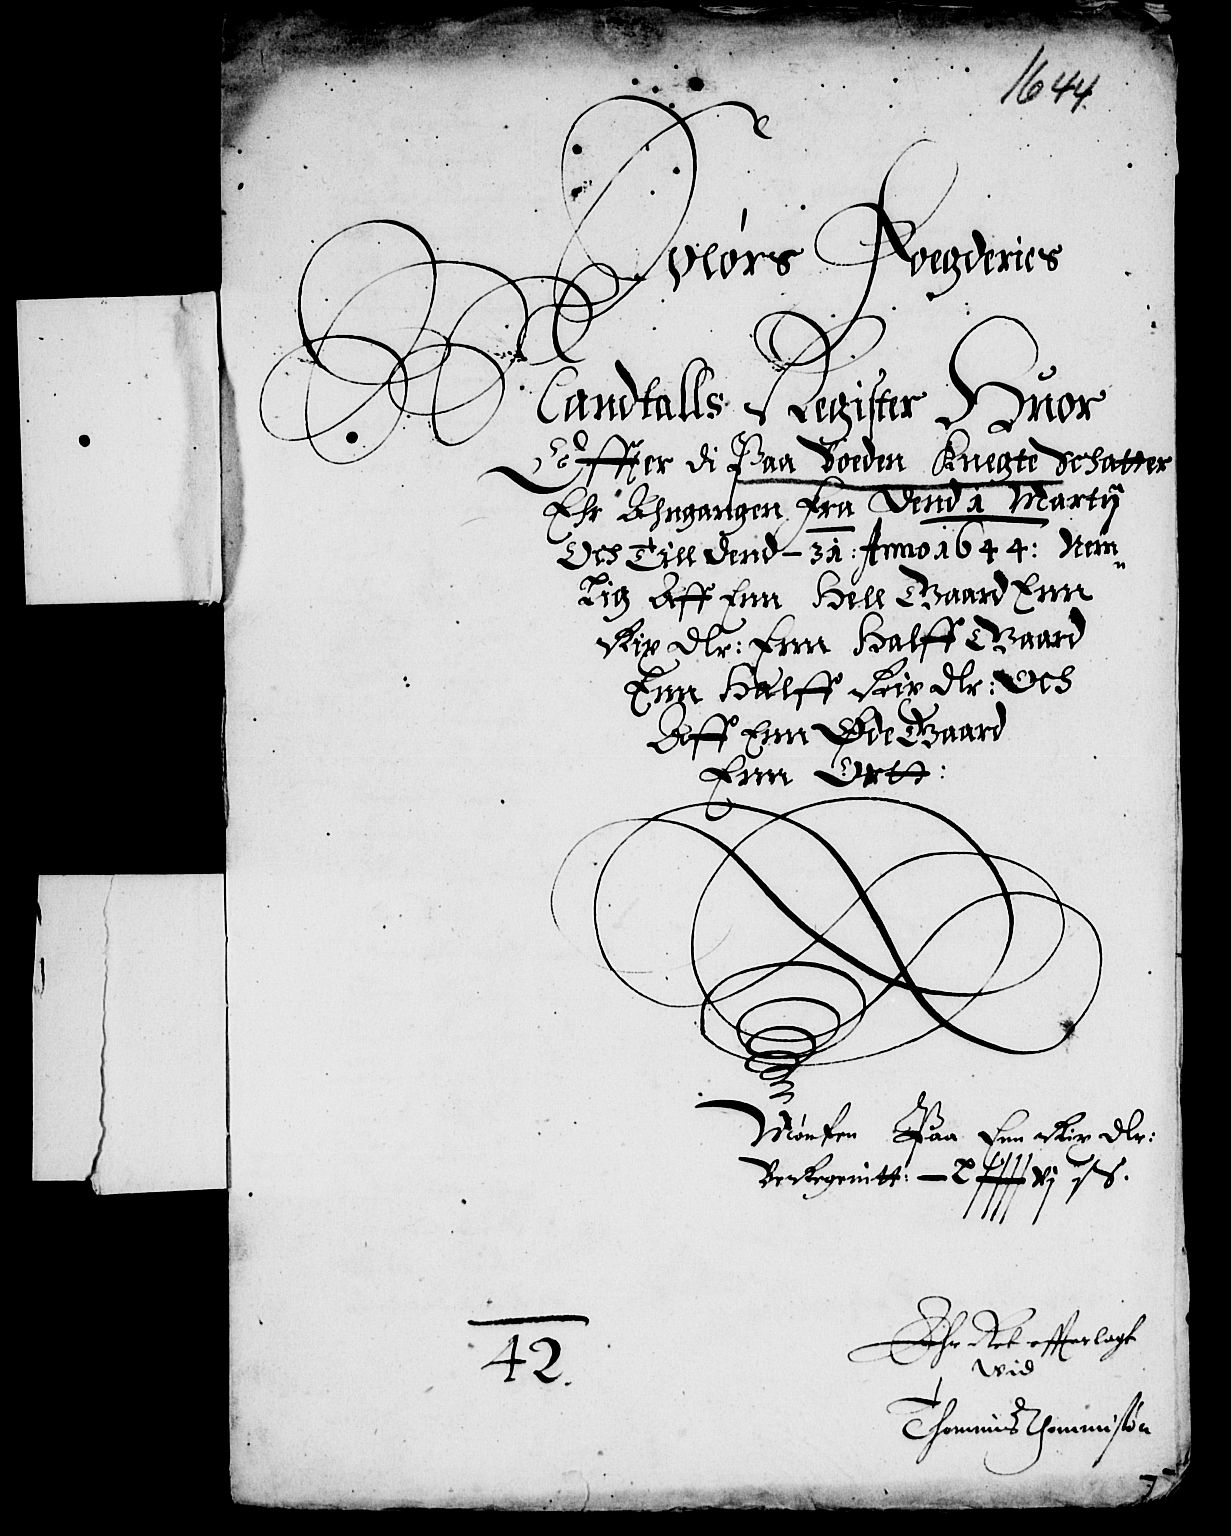 1644
Sølørs Foegderies
Landtalls Register Huor
Effter di Paa Boeden Knegte Schatter
Ehr Ahngangen Fra Dend 1 Martÿ
Och Till dend – 31: Anno 1644: Nem
lig Aff Enn Hell Gaard Enn
Rix dlr: Enn Halff Gaard
Enn Halff Rix dlr: Och
Aff Enn Øde Gaard
Enn Ortt:
Mönten Paa Enn Rix dlr:
Beregenitt:
Ehr Ret efferlagt
Wid
Thommis Thommisøn
42.